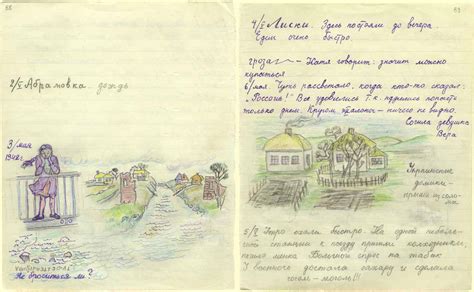 88
2/V Абрамовка. дождь
3/мая
1942г.
Не броситься ли?
89
4/V Лиски. Здесь постояли до вечера.
Едем очень быстро
гроза — Катя говорит: значит можно
купаться
6/мая Чуть рассветало, когда кто-то сказал:
"Россошь!" Все удивились т.к. думали попасть
только днем. Кругом — ничего не видно.
Сошла девушка
Вера
Украинские
домики -
крыши из соло-
мы
5/V Утро ехали быстро. На одной неболь-
шой станции к поезду пришли колхозники,
мена Большой спрос на табак
У военного достала сахару и сделала
гоголь-моголь!!!